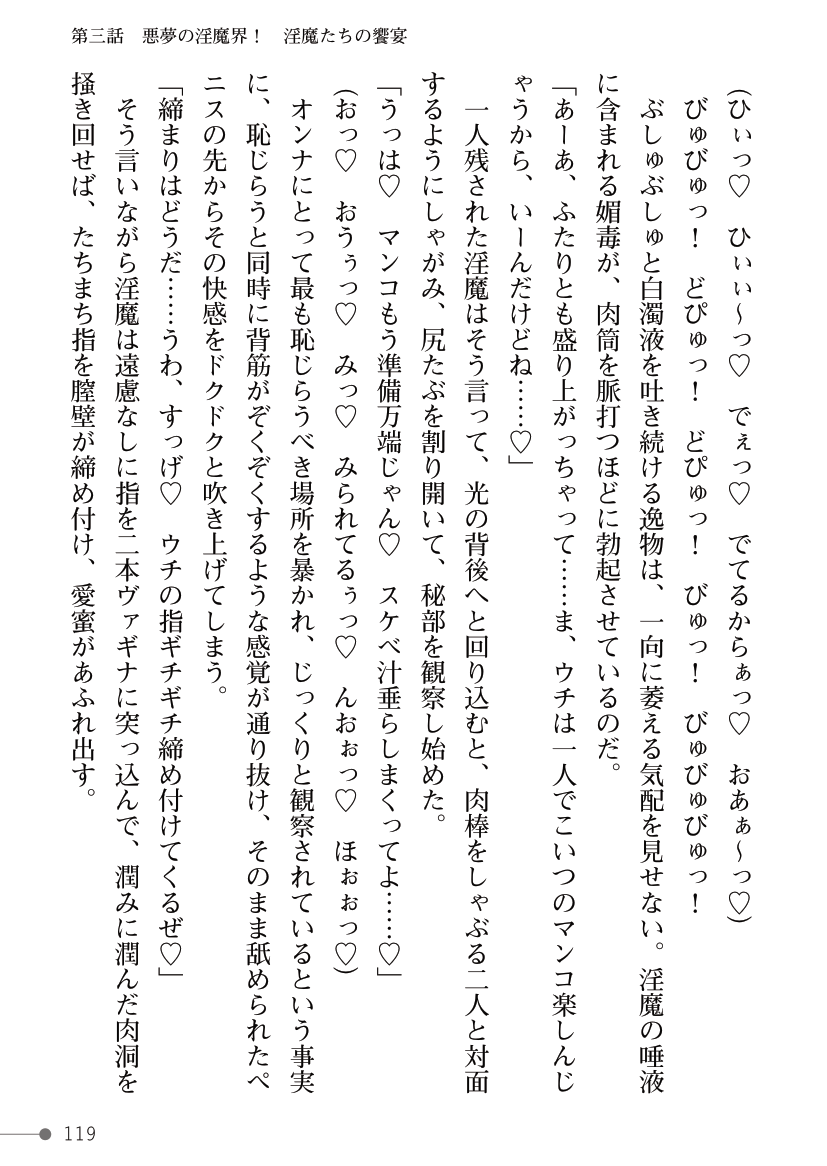 第三話　悪夢の淫魔界！　淫魔たちの饗宴
(ひぃっ♡　ひぃぃ～っ♡　でぇっ♡　でてるからぁっ♡　おあぁ～っ♡)
びゅびゅっ！　どぴゅっ！　どぴゅっ！　びゅっ！　びゅびゅびゅっ！
ぶしゅぶしゅと白濁液を吐き続ける逸物は、一向に萎える気配を見せない。淫魔の唾液
に含まれる媚毒が、肉筒を脈打つほどに勃起させているのだ。
「あーあ、ふたりとも盛り上がっちゃって……ま、ウチは一人でこいつのマンコ楽しんじ
ゃうから、いーんだけどね……♡」
一人残された淫魔はそう言って、光の背後へと回り込むと、肉棒をしゃぶる二人と対面
するようにしゃがみ、尻たぶを割り開いて、秘部を観察し始めた。
「うっは♡　マンコもう準備万端じゃん♡　スケベ汁垂らしまくってよ……♡」
(おっ♡　おうぅっ♡　みっ♡　みられてるぅっ♡　んおぉっ♡　ほぉぉっ♡)
オンナにとって最も恥じらうべき場所を暴かれ、じっくりと観察されているという事実
に、恥じらうと同時に背筋がぞくぞくするような感覚が通り抜け、そのまま舐められたペ
ニスの先からその快感をドクドクと吹き上げてしまう。
「締まりはどうだ……うわ、すっげ♡　ウチの指ギチギチ締め付けてくるぜ♡」
そう言いながら淫魔は遠慮なしに指を二本ヴァギナに突っ込んで、潤みに潤んだ肉洞を
掻き回せば、たちまち指を膣壁が締め付け、愛蜜があふれ出す。
119